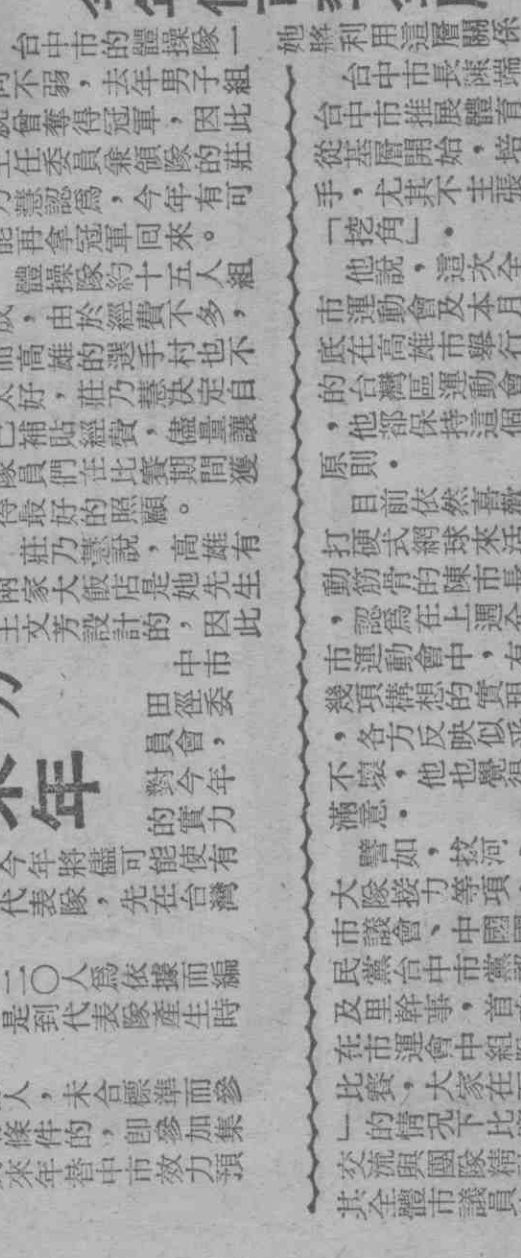 台中市的體操隊一
向不弱，去年男子組
就曾奪得冠軍，因此
主任委員兼領隊的莊
乃慧認為，今年有可
能再拿冠軍回來。
體操隊約十五人組
成，由於經費不多，
而高雄的選手村也不
太好，莊乃慧決定自
己補貼經費，儘量讓
隊員們在比賽期間獲
得最好的照顧。
莊乃慧說，高雄有
兩家大飯店是她先生
王文芳設計的，因此
她將利用這層關係
中市
田徑委
員會，
對今年
的實力
來年
今年將儘可能使有
代表隊，先在台灣
二〇人為依據而編
是到代表隊產生時
人，未合標準而參
條件的，即參加集
來年替中市效力預
台中市長陳端
台中市推展體育
從基層開始，培
手，尤其不主張
「挖角」。
他說，這次全
市運動會及本月
底在高雄市舉行
的台灣區運動會
，他都保持這個
原則。
目前依然喜歡
打硬式網球來活
動筋骨的陳市長
，認為在上週全
市運動會中，有
幾項構想的實現
，各方反映似乎
不壞，他也覺得
滿意。
譬如，拔河、
大隊接力等項，
市議會、中國國
民黨台中市黨部
及里幹事，首次
在市運會中組隊
比賽，大家在「
」的情況下比
交流與團隊精
共全體市議員